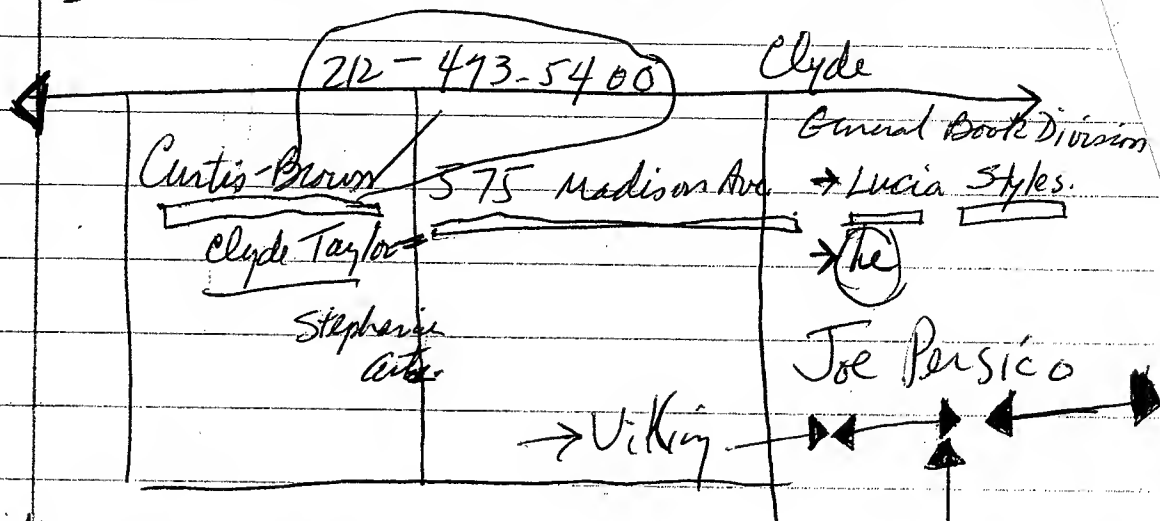 212-473-5400
Clyde
General Book Division
Curtis-Brown
575 Madison Ave.
→ Lucia Styles.
Clyde Taylor
→ he
Stephanie
Joe Persico
→ Viking